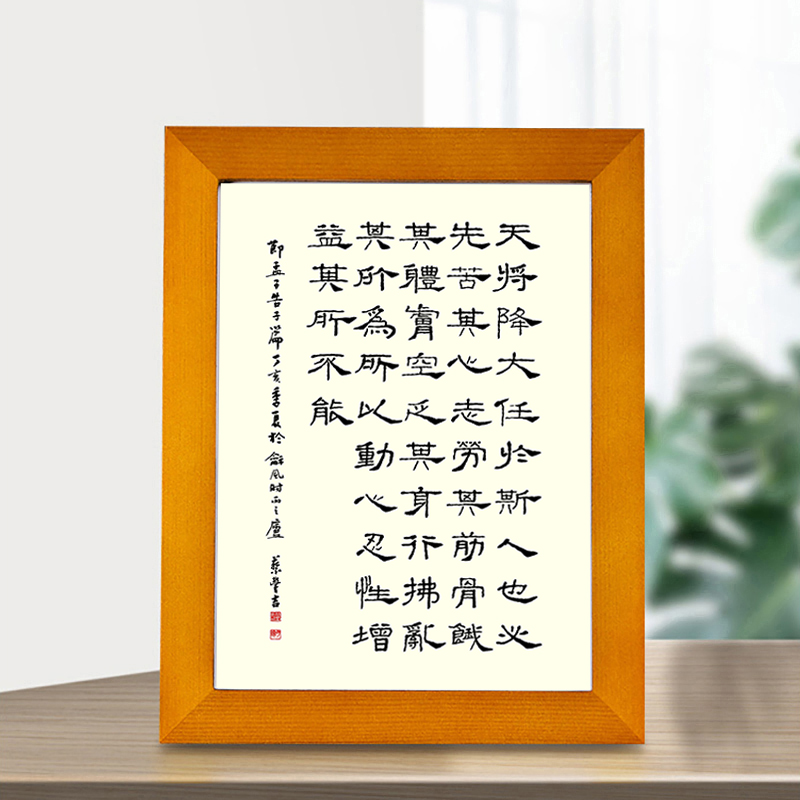 天將降大任於斯人也必
先苦其心志勞其筋骨餓
其體膚空乏其身行拂亂
其所爲所以動心忍性增
益其所不能
節孟子告子篇丁亥季夏於龢風時雨之廬 蔡豐吉